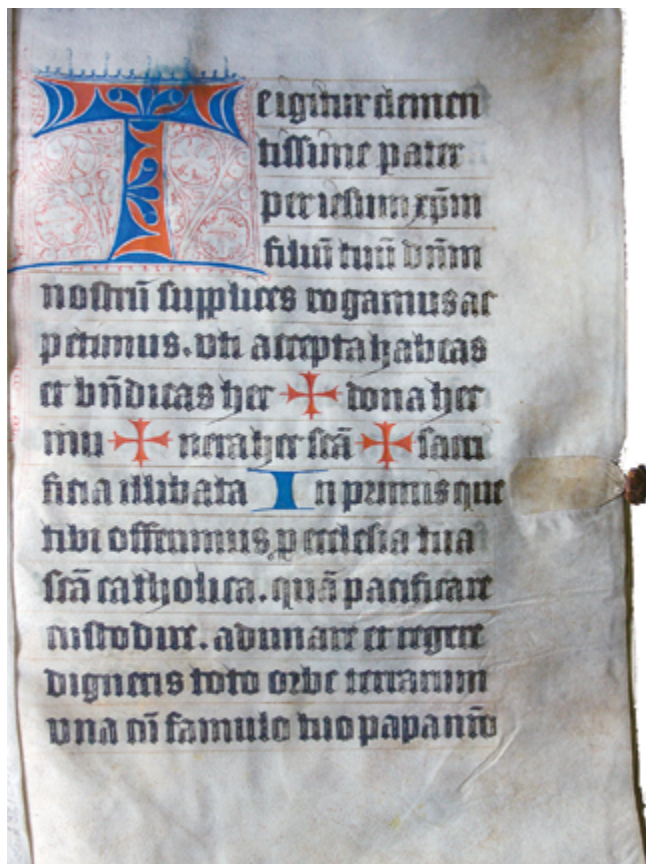 Te igitur clemen
tissime pater
per iesum xp̄m
filiū tuū dn̄m
nostrū supplices rogamus ac
petimus. vti accepta habeas
et bn̄dicas hec ✠ dona hec
mu ✠ nera hec scā ✠ sacri
ficia illibata In primis que
tibi offerimus p̱ ecclesia tua
scā catholica. quā pacificare
custodire. adunare et regere
digneris toto orbe terrarum
vna cū famulo tuo papa nr̄o